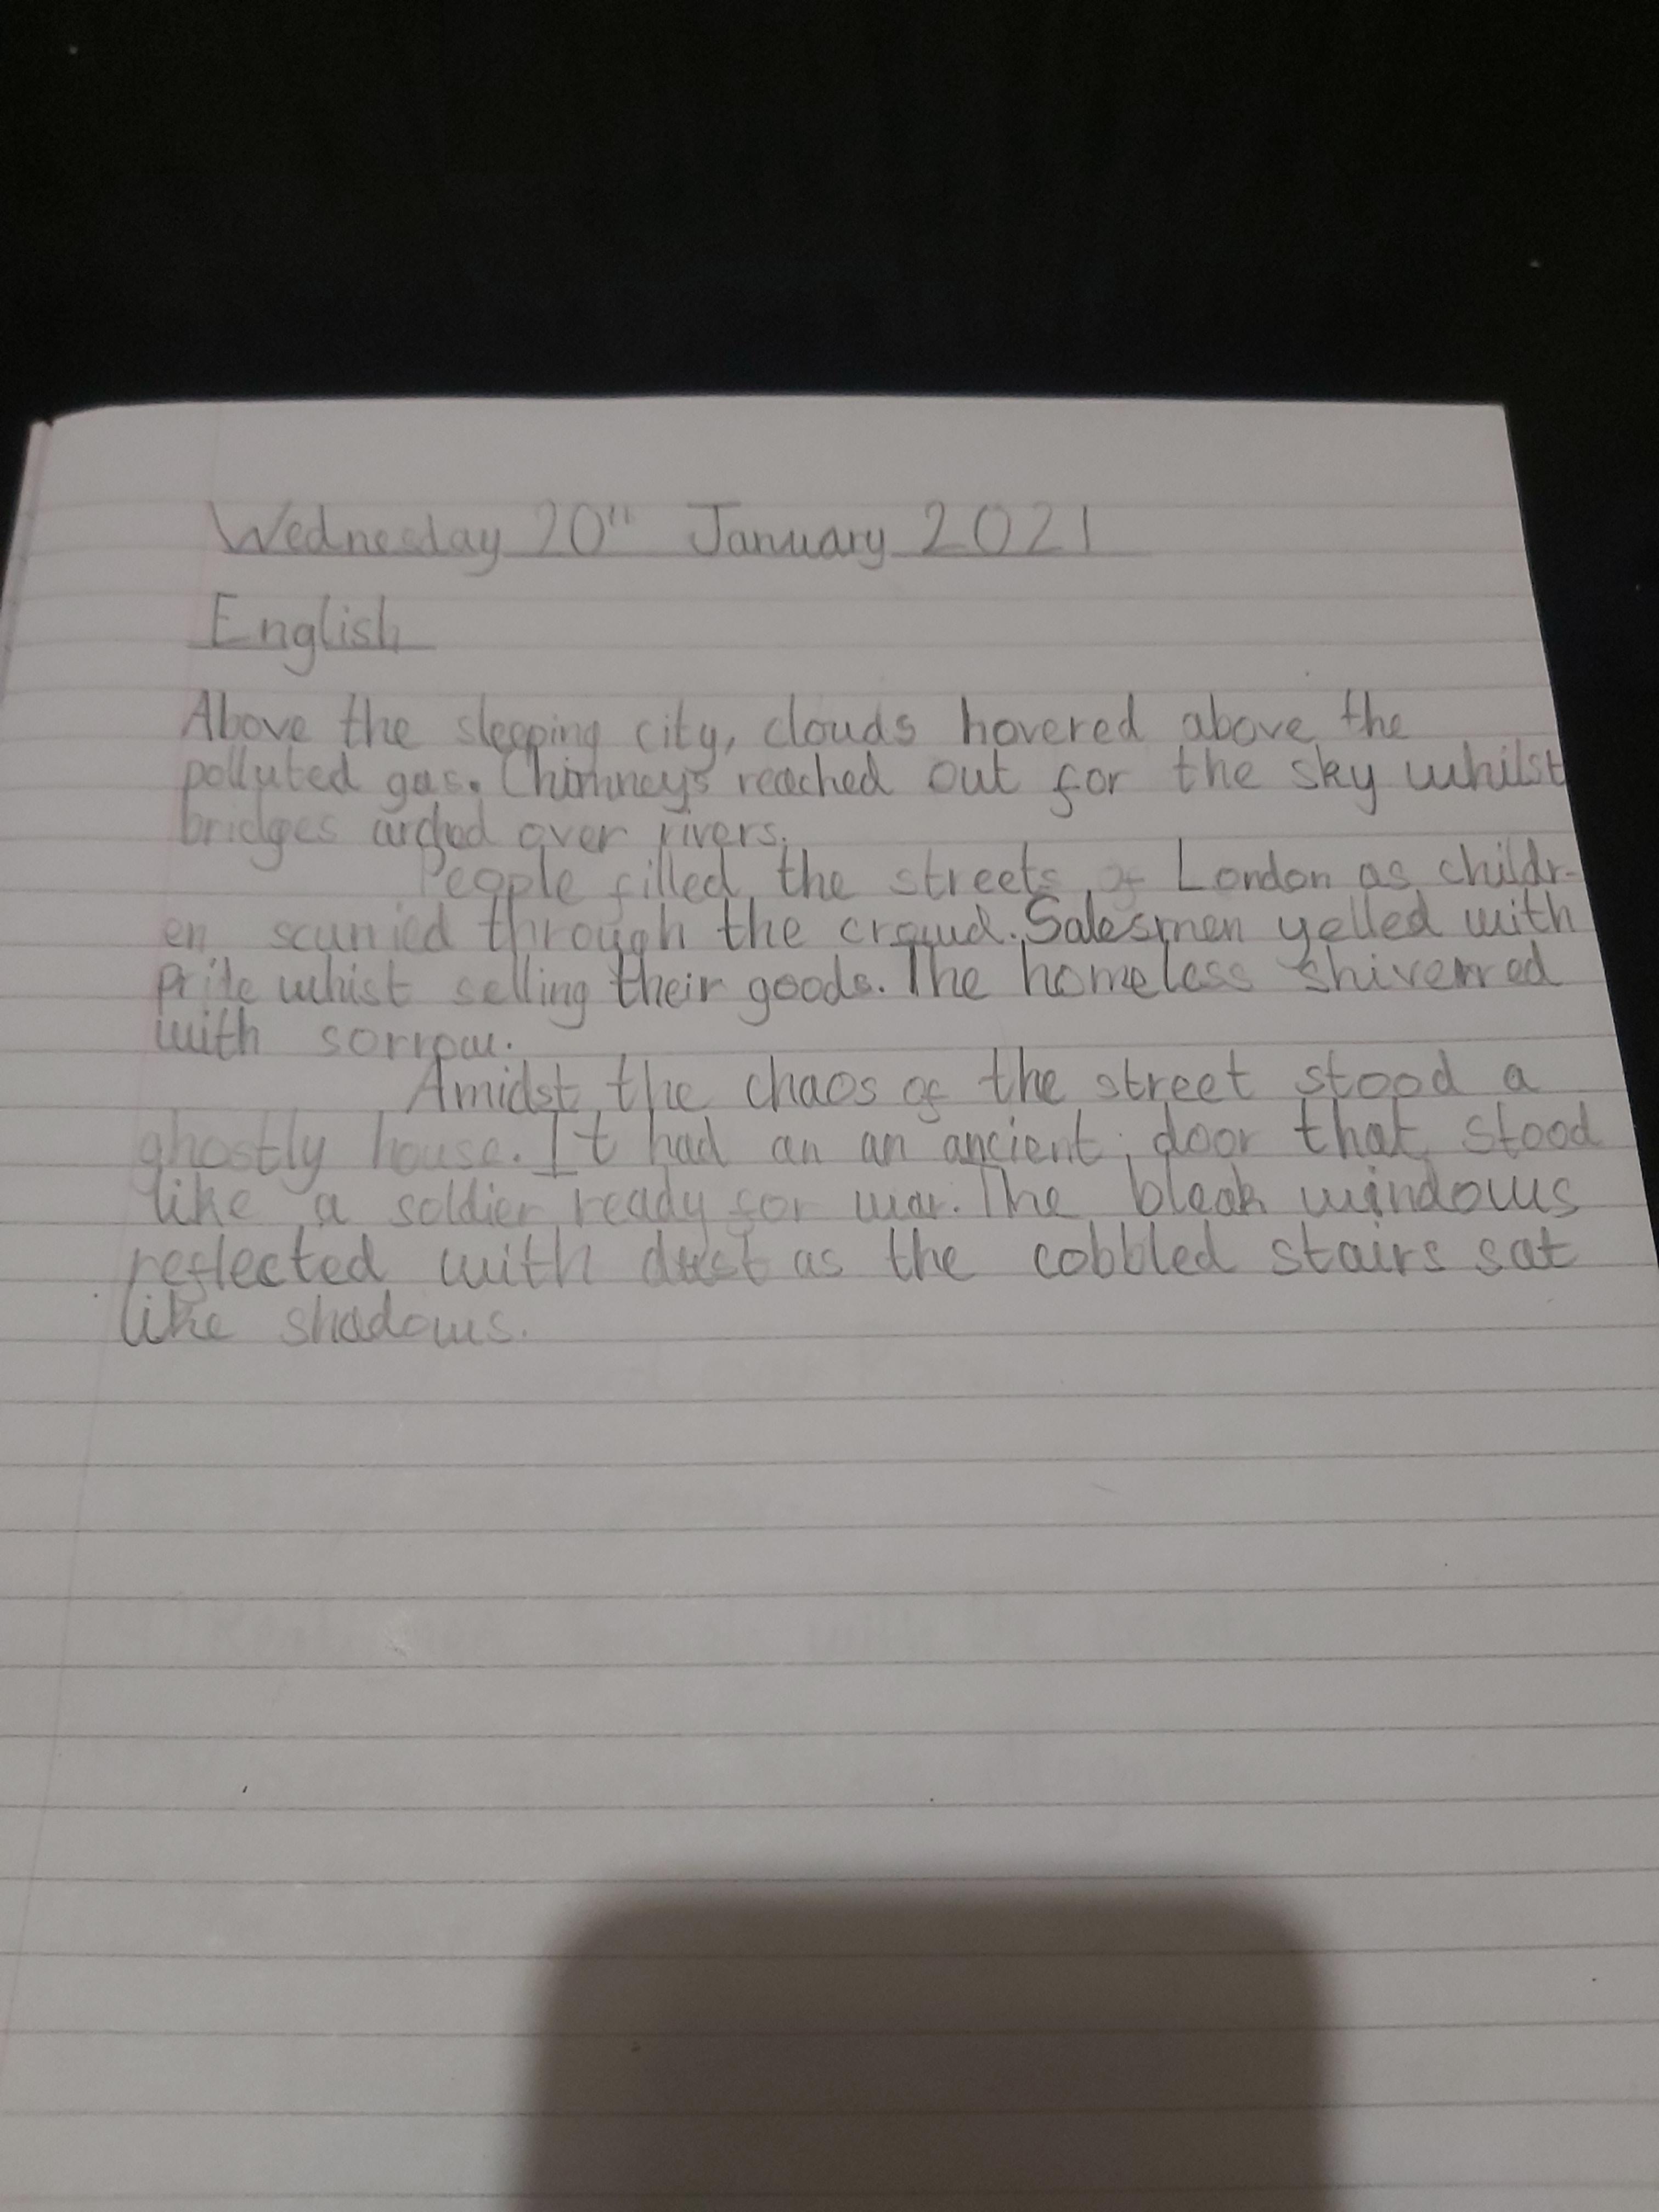 Wednesday 20th January 2021
English
Above the sleeping city, clouds hovered above the
polluted gas. Chimneys reached out for the sky whilst
bridges arched over rivers.
People filled the streets of London as childr-
en scurried through the crowd. Salesmen yelled with
pride whist selling their goods. The homeless shiverred
with sorrow.
Amidst the chaos of the street stood a
ghostly house. It had an an ancient door that stood
like a soldier ready for war. The bleak windows
reflected with dust as the cobbled stairs sat
like shadows.